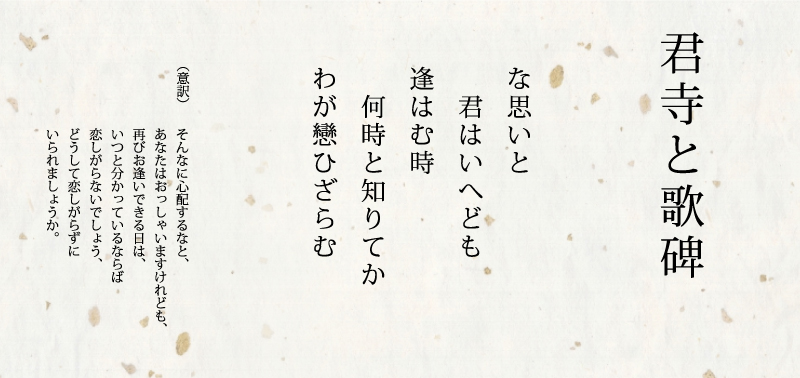 君寺と歌碑
な思いと
君はいへども
逢はむ時
何時と知りてか
わが戀ひざらむ
（意訳）
そんなに心配するなと、
あなたはおっしゃいますけれども、
再びお逢いできる日は、
いつと分かっているならば
恋しがらないでしょう、
どうして恋しがらずに
いられましょうか。